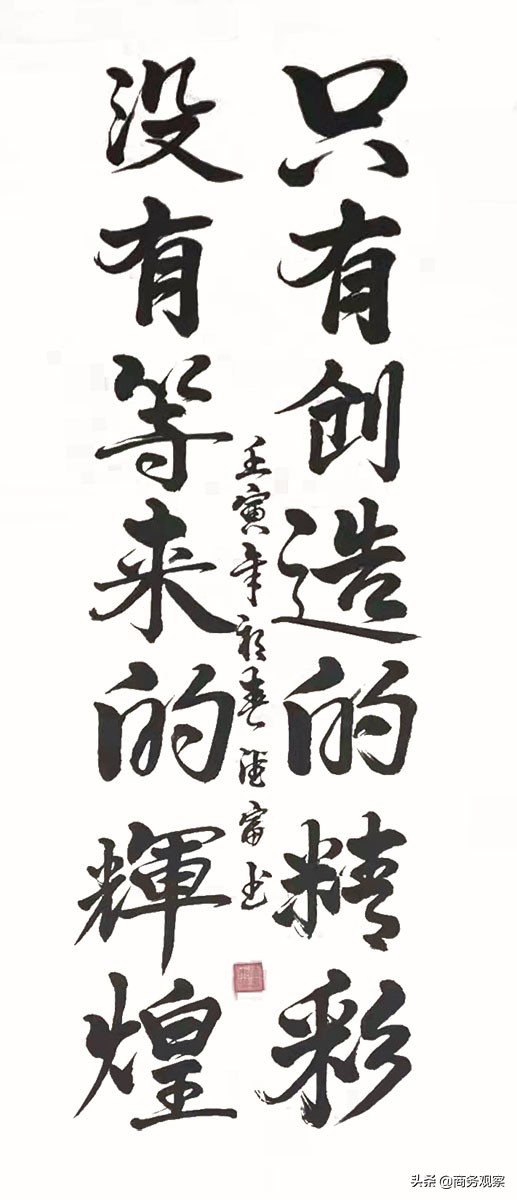 只有创造的精彩
没有等来的輝煌
壬寅年初春德富书
头条 @商务观察